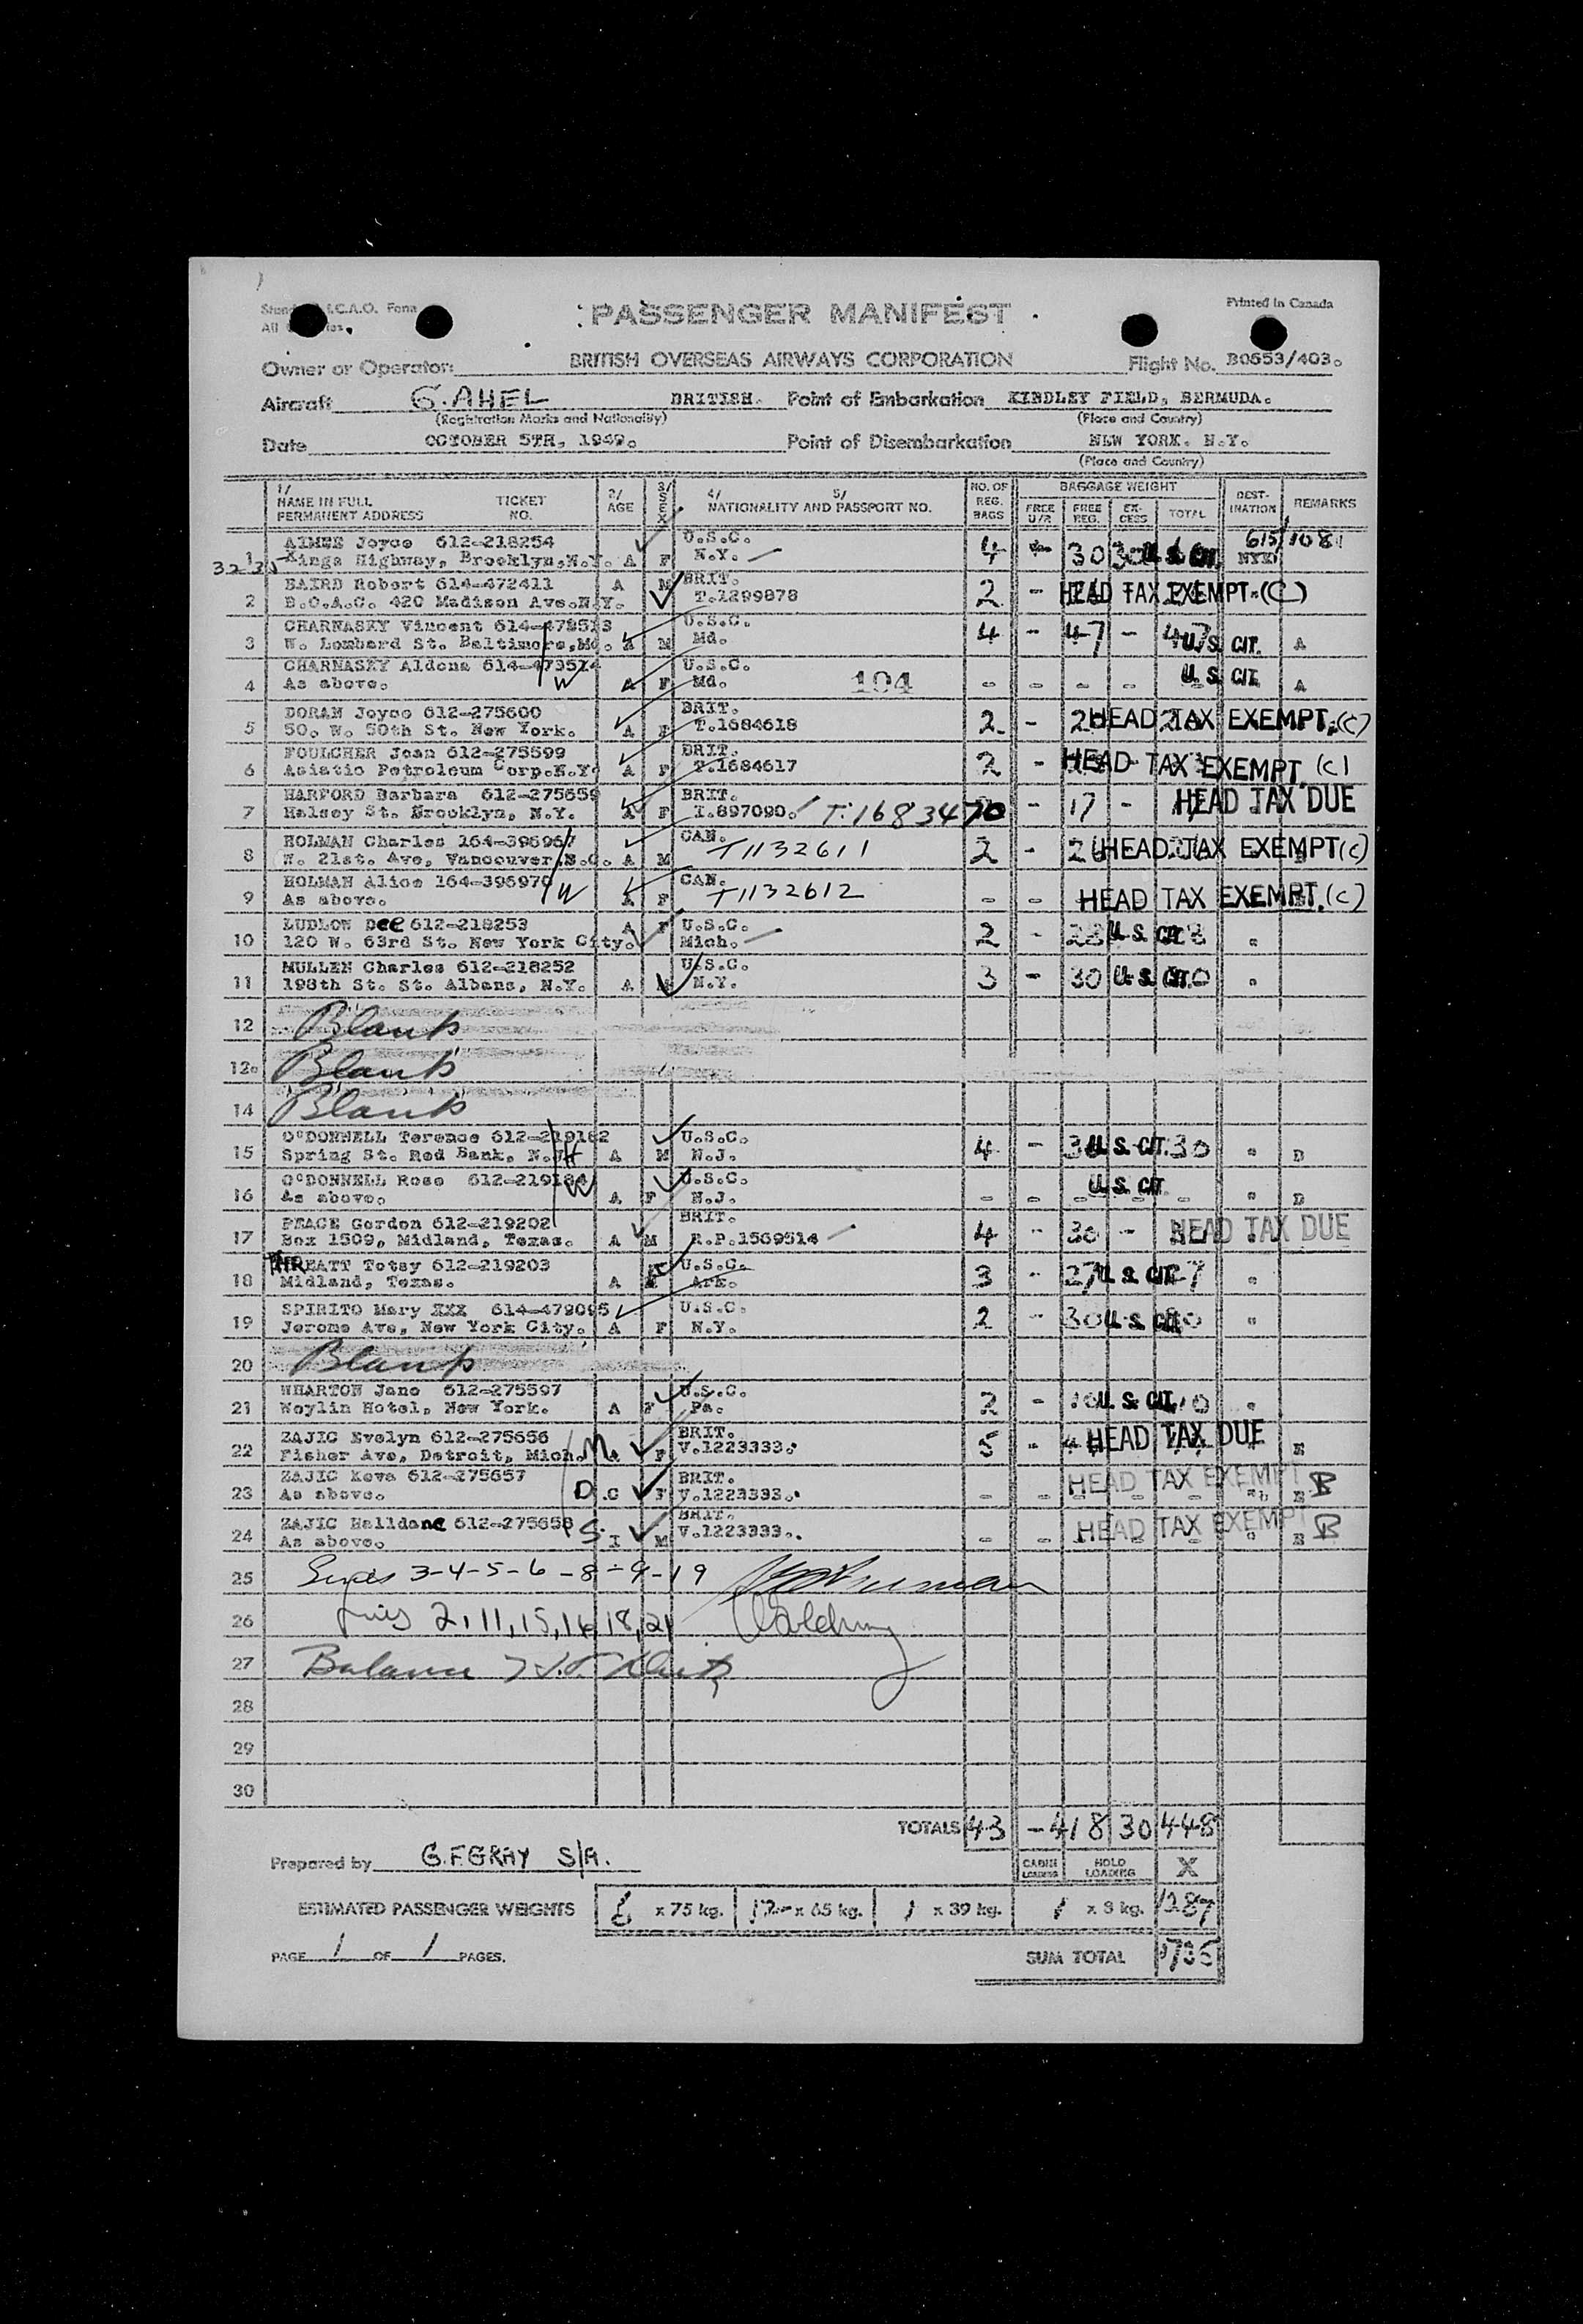 Printed in Canada
PASSENGER MANIFEST
Owner or Operator: BRITISH OVERSEAS AIRWAYS CORPORATION Flight No. B0653/403.
Aircraft G.AHEL BRITISH. Point of Embarkation KINDLEY FIELD, BERMUDA.
(Registration Marks and Nationality) (Place and Country)
Date OCTOBER 5TH, 1949. Point of Disembarkation NEW YORK. N.Y.
(Place and Country)
1/ NAME IN FULL PERMANENT ADDRESS TICKET NO. 2/ AGE 3/ SEX 4/ NATIONALITY AND 5/ PASSPORT NO. NO. OF REG. BAGS BAGGAGE WEIGHT FREE U/R FREE REG. EX-CESS TOTAL DEST-INATION REMARKS
AIMEE Joyce 612-218254 U.S.C. 615/1081
1 Kings Highway, Brooklyn, N.Y. A F N.Y. 4 30 30 U.S. CIT. NYK
BAIRD Robert 614-472411 A M BRIT.
2 B.O.A.C. 420 Madison Ave. N.Y. T.1299878 2 - HEAD TAX EXEMPT (C)
CHARNASKY Vincent U.S.C.
3 W. Lombard St. Baltimore, Md. A M Md. 4 - 47 - 47 U.S. CIT. A
CHARNASKY Aldona U.S.C.
4 As above. W A F Md. 104 - - - - U.S. CIT. A
DORAN Joyce 612-275600 BRIT.
5 50. W. 50th St. New York. A F T.1684618 2 - HEAD TAX EXEMPT. (C)
FOULCHER Joan 612-275599 BRIT.
6 Asiatic Petroleum Corp. N.Y. A F T.1684617 2 - HEAD TAX EXEMPT. (C)
HARFORD Barbara 612-275659 BRIT.
7 Halsey St. Brooklyn, N.Y. A F T.897090. T.1683470 - 17 - HEAD TAX DUE
HOLMAN Charles 164-396967 CAN.
8 W. 21st. Ave, Vancouver, B.C. A M T1132611 2 - 26 HEAD TAX EXEMPT (C)
HOLMAN Alice 164-396970 CAN.
9 As above. W A F T1132612 - - HEAD TAX EXEMPT. (C)
LUDLOW Dee 612-218253 A F U.S.C.
10 120 W. 63rd St. New York City. Mich. 2 - 28 U.S. CIT. 28 "
MULLEN Charles 612-218252 U.S.C.
11 198th St. St. Albans, N.Y. A M N.Y. 3 - 30 U.S. CIT. 30 "
12 Blank
Blank
14 Blank
O'DONNELL Terence 612-219182 U.S.C.
15 Spring St. Red Bank, N.J. H A M N.J. 4 - 30 U.S. CIT. 30 " D
O'DONNELL Rose U.S.C.
16 As above. W A F N.J. - - U.S. CIT. - " D
PEACE Gordon 612-219202 BRIT.
17 Box 1509, Midland, Texas. A M R.P.1569514 4 - 30 - HEAD TAX DUE
Totsy 612-219203 U.S.C.
18 Midland, Texas. A F Ark. 3 - 27 U.S. CIT. 27 "
SPIRITO Mary XXX 614-479095 U.S.C.
19 Jerome Ave, New York City. A F N.Y. 2 - 30 U.S. CIT. 30 "
20 Blank
WHARTON Jane 612-275597 U.S.C.
21 Weylin Hotel, New York. A F Pa. 2 - 10 U.S. CIT. 10 "
ZAJIC Evelyn 612-275656 BRIT.
22 Fisher Ave, Detroit, Mich. M. A F V.1223333. 5 - HEAD TAX DUE E
ZAJIC Keva 612-275657 BRIT.
23 As above. D C F V.1223333. - - HEAD TAX EXEMPT E B
ZAJIC Halldane 612-275658 BRIT.
24 As above. S. I M V.1223333. - - HEAD TAX EXEMPT E B
25 3-4-5-6-8-9-19
26 2, 11, 15, 16, 18, 21
27 Balance
28
29
30
TOTALS 43 - 418 30 448
Prepared by G.F.GRAY S/A. CABIN LOADING HOLD LOADING X
ESTIMATED PASSENGER WEIGHTS 6 x 75 kg. 12 x 65 kg. 1 x 39 kg. 1 x 8 kg. 1287
PAGE 1 OF 1 PAGES. SUM TOTAL 1735